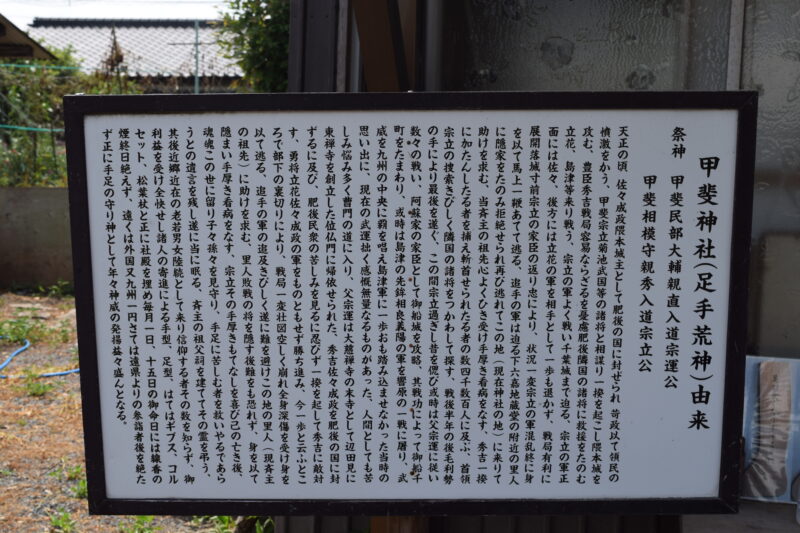 甲斐神社（足手荒神）由来
祭神　甲斐民部大輔親直入道宗運公
甲斐相模守親秀入道宗立公
天正の頃、佐々成政隈本城主として肥後の国に封ぜられ苛政以て領民の
憤激をかう。甲斐宗立菊池武国等の諸将と相謀り一揆を起こし隈本城を
攻む、豊臣秀吉戦局容易ならざるを憂慮肥後隣国の諸将に救援をたのむ
立花、島津等来り戦う、宗立の軍よく戦い千葉城まで迫る、宗立の軍正
面には佐々、後方には立花の軍を相手として一歩も退かず、戦局有利に
展開落城寸前宗立の家臣の返り忠により、状況一変宗立の軍混乱終に身
を以て馬上一鞭あてて逃る、追手の軍は迫る下六嘉地蔵堂の附近の里人
に隠家をたのみ拒絶せられ再び逃れてこの地（現在神社の地）に来りて
助けを求む、当斉主の祖先心よくひき受け手厚き看病をなす、秀吉一揆
に加たんしたる者を捕え斬首せられたる者の数四千数百人に及ぶ、首領
宗立の捜索きびしく隣国の諸将をつかわして探す、戦後半年の後毛利勢
の手により最後を遂ぐ、この間宗立過ぎし昔を偲び或時は父宗運に従い
数々の戦い、阿蘇家の家臣として御船城を攻略、其戦功によって御船千
町をたまわり、或時は島津の先鉾相良義陽の軍を響原の一戦に屠り、武
威を九州の中央に覇を唱え島津軍に一歩もお踏み込ませなかった当時の
思い出に、現在の武運拙く感慨無量なるものがあった、人間としても苦
しみ悩み多く曹門の道に入り、父宗運は大慈禅寺の末寺として辺田見に
東禅寺を創立した位仏門に帰依せられた、秀吉佐々成政を肥後の国に封
ずるに及び、肥後民衆の苦しみを見るに忍びず一揆を起して秀吉に敵対
す、勇将立花佐々成政の軍をものともせず勝ち進み、今一歩と云ふとこ
ろで部下の裏切りにより、戦局一変壮図空しく崩れ全身深傷を受け身を
以て逃る、追手の軍の追及きびしく遂に難を避けこの地の里人（現斉主
の祖先）に助けを求む、里人敗戦の将を隠す後難をも恐れず、身を以て
隠まい手厚き看病をなす、宗立その手厚きもてなしを喜び己の亡き後、
魂魄この世に留り子々孫々を見守り、手足に苦しむ者を救いやるであら
うとの遺言を残し遂に当に眠る、斉主の祖父祠を建ててその霊を弔う、
其後近郷近在の老若男女陸続として来り信仰する者その数を知らず、御
利益を受け全快せし諸人の寄進による手型、足型、はてはギブス、コル
セット、松葉杖と正に社殿を埋め毎月一日、十五日の御命日には線香の
煙終日絶えず、遠くは外国又九州一円さては遠県よりの参詣者後を絶た
ず正に手足の守り神として年々神威の発揚益々盛んとなる。